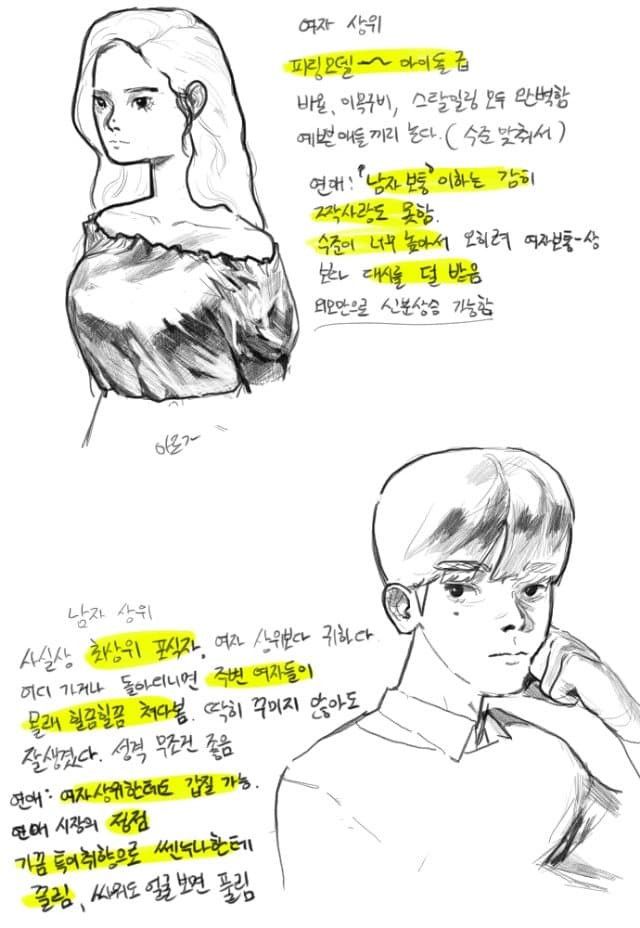 여자 상위
피팅모델 ~ 아이돌급
비율, 이목구비, 스타일링 모두 완벽함
예쁜 애들끼리 논다. (수준 맞춰서)
연애: "남자 보통" 이하는 감히
짝사랑도 못함.
수준이 너무 높아서 오히려 여자보통-상
보다 대시를 덜 받음
외모만으로 신분상승 가능함
남자 상위
사실상 최상위 포식자. 여자 상위보다 귀하다
어디 가거나 돌아다니면 주변 여자들이
몰래 힐끔힐끔 쳐다봄. 딱히 꾸미지 않아도
잘생겼다. 성격 무조건 좋음
연애: 여자상위한테도 갑질 가능.
연애 시장의 정점
가끔 특이취향으로 쎈누나한테
끌림, 싸워도 얼굴보면 풀림